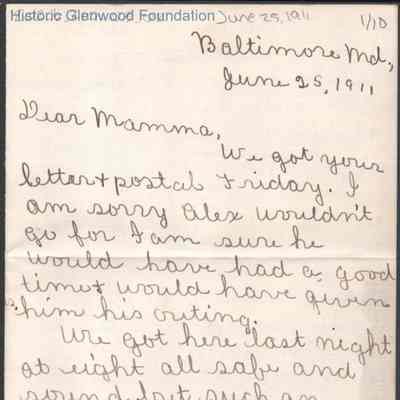 Historic Glenwood Foundation June 25, 1911
1/10
Baltimore Md.,
June 25, 1911
Dear Mamma,
We got your
letter & postal Friday. I
am sorry Alex wouldn't
go for I am sure he
would have had a good
time & would have given
him his outing.
We got here last night
at eight all safe and
sound but such an